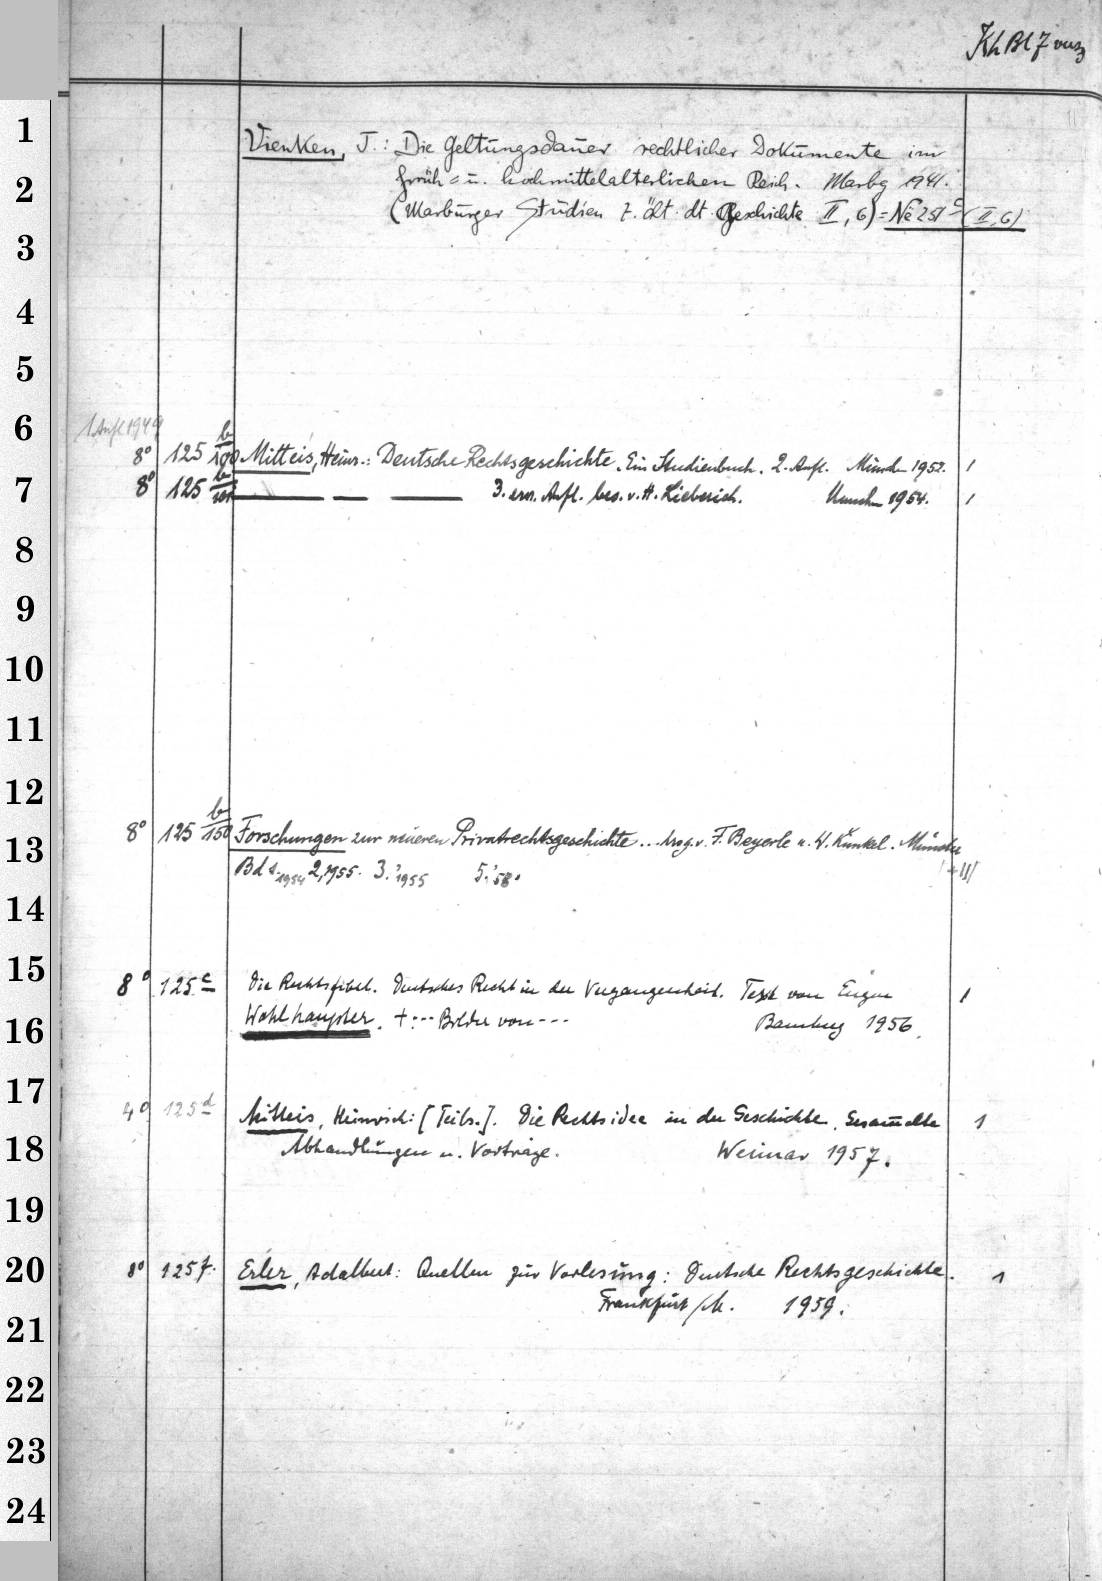 Kh Bl 7 vvz
Vienken, T.: Die Geltungsdauer rechtlicher Dokumente im
früh- u. hochmittelalterlichen Reich. Marbg 1941.
(Marburger Studien z. ält. dt. Geschichte II, 6) = Ne 251 c (II, 6)
1 Aufl 1949
8° 125 b/100 Mitteis, Heinr.: Deutsche Rechtsgeschichte. Ein Studienbuch. 2. Aufl. Münch 1952. 1
8° 125 b/101 — — — 3. erw. Aufl. bes. v. H. Lieberich. Münch 1954. 1
8° 125 b/150 Forschungen zur neueren Privatrechtsgeschichte... hrsg. v. F. Beyerle u. W. Kunkel. Münster
Bd 1. 1954 2, 1955. 3. '1955 5. '58.
8° 125 c Die Rechtsfibel. Deutsches Recht in der Vergangenheit. Text von Eugen 1
Wohlhaupter. +... Bilder von ---
Bamberg 1956.
4° 125 d Mitteis, Heinrich: [Teils.]. Die Rechtsidee in der Geschichte. Gesammelte 1
Abhandlungen u. Vorträge. Weimar 1957.
8° 125 f. Erler, Adalbert: Quellen zur Vorlesung: Deutsche Rechtsgeschichte. 1
Frankfurt/M. 1959.
1
2
3
4
5
6
7
8
9
10
11
12
13
14
15
16
17
18
19
20
21
22
23
24